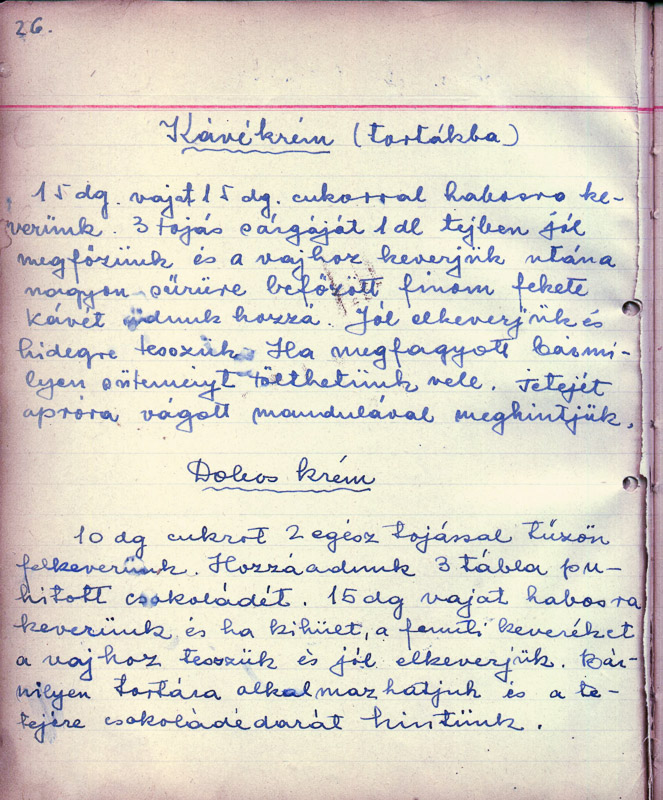 26.
Kávékrém (tortákba)
15 dg. vajat 15 dg. cukorral habosra ke-
verünk. 3 tojás sárgáját 1 dl tejben jól
megfőzünk és a vajhoz keverjük utána
nagyon sűrüre befőzött finom fekete
kávét adunk hozzá. Jól elkeverjük és
hidegre tesszük. Ha megfagyott bármi-
lyen süteményt tölthetünk vele. Tetejét
apróra vágott mandulával meghintjük.
Dobos krém
10 dg cukrot 2 egész tojással tűzön
felkeverünk. Hozzáadunk 3 tábla pu-
hitott csokoládét. 15 dg vajat habosra
keverünk és ha kihült, a fennti keveréket
a vajhoz tesszük és jól elkeverjük. Bár-
milyen tortára alkalmazhatjuk és a te-
tejére csokoládédarát hintünk.